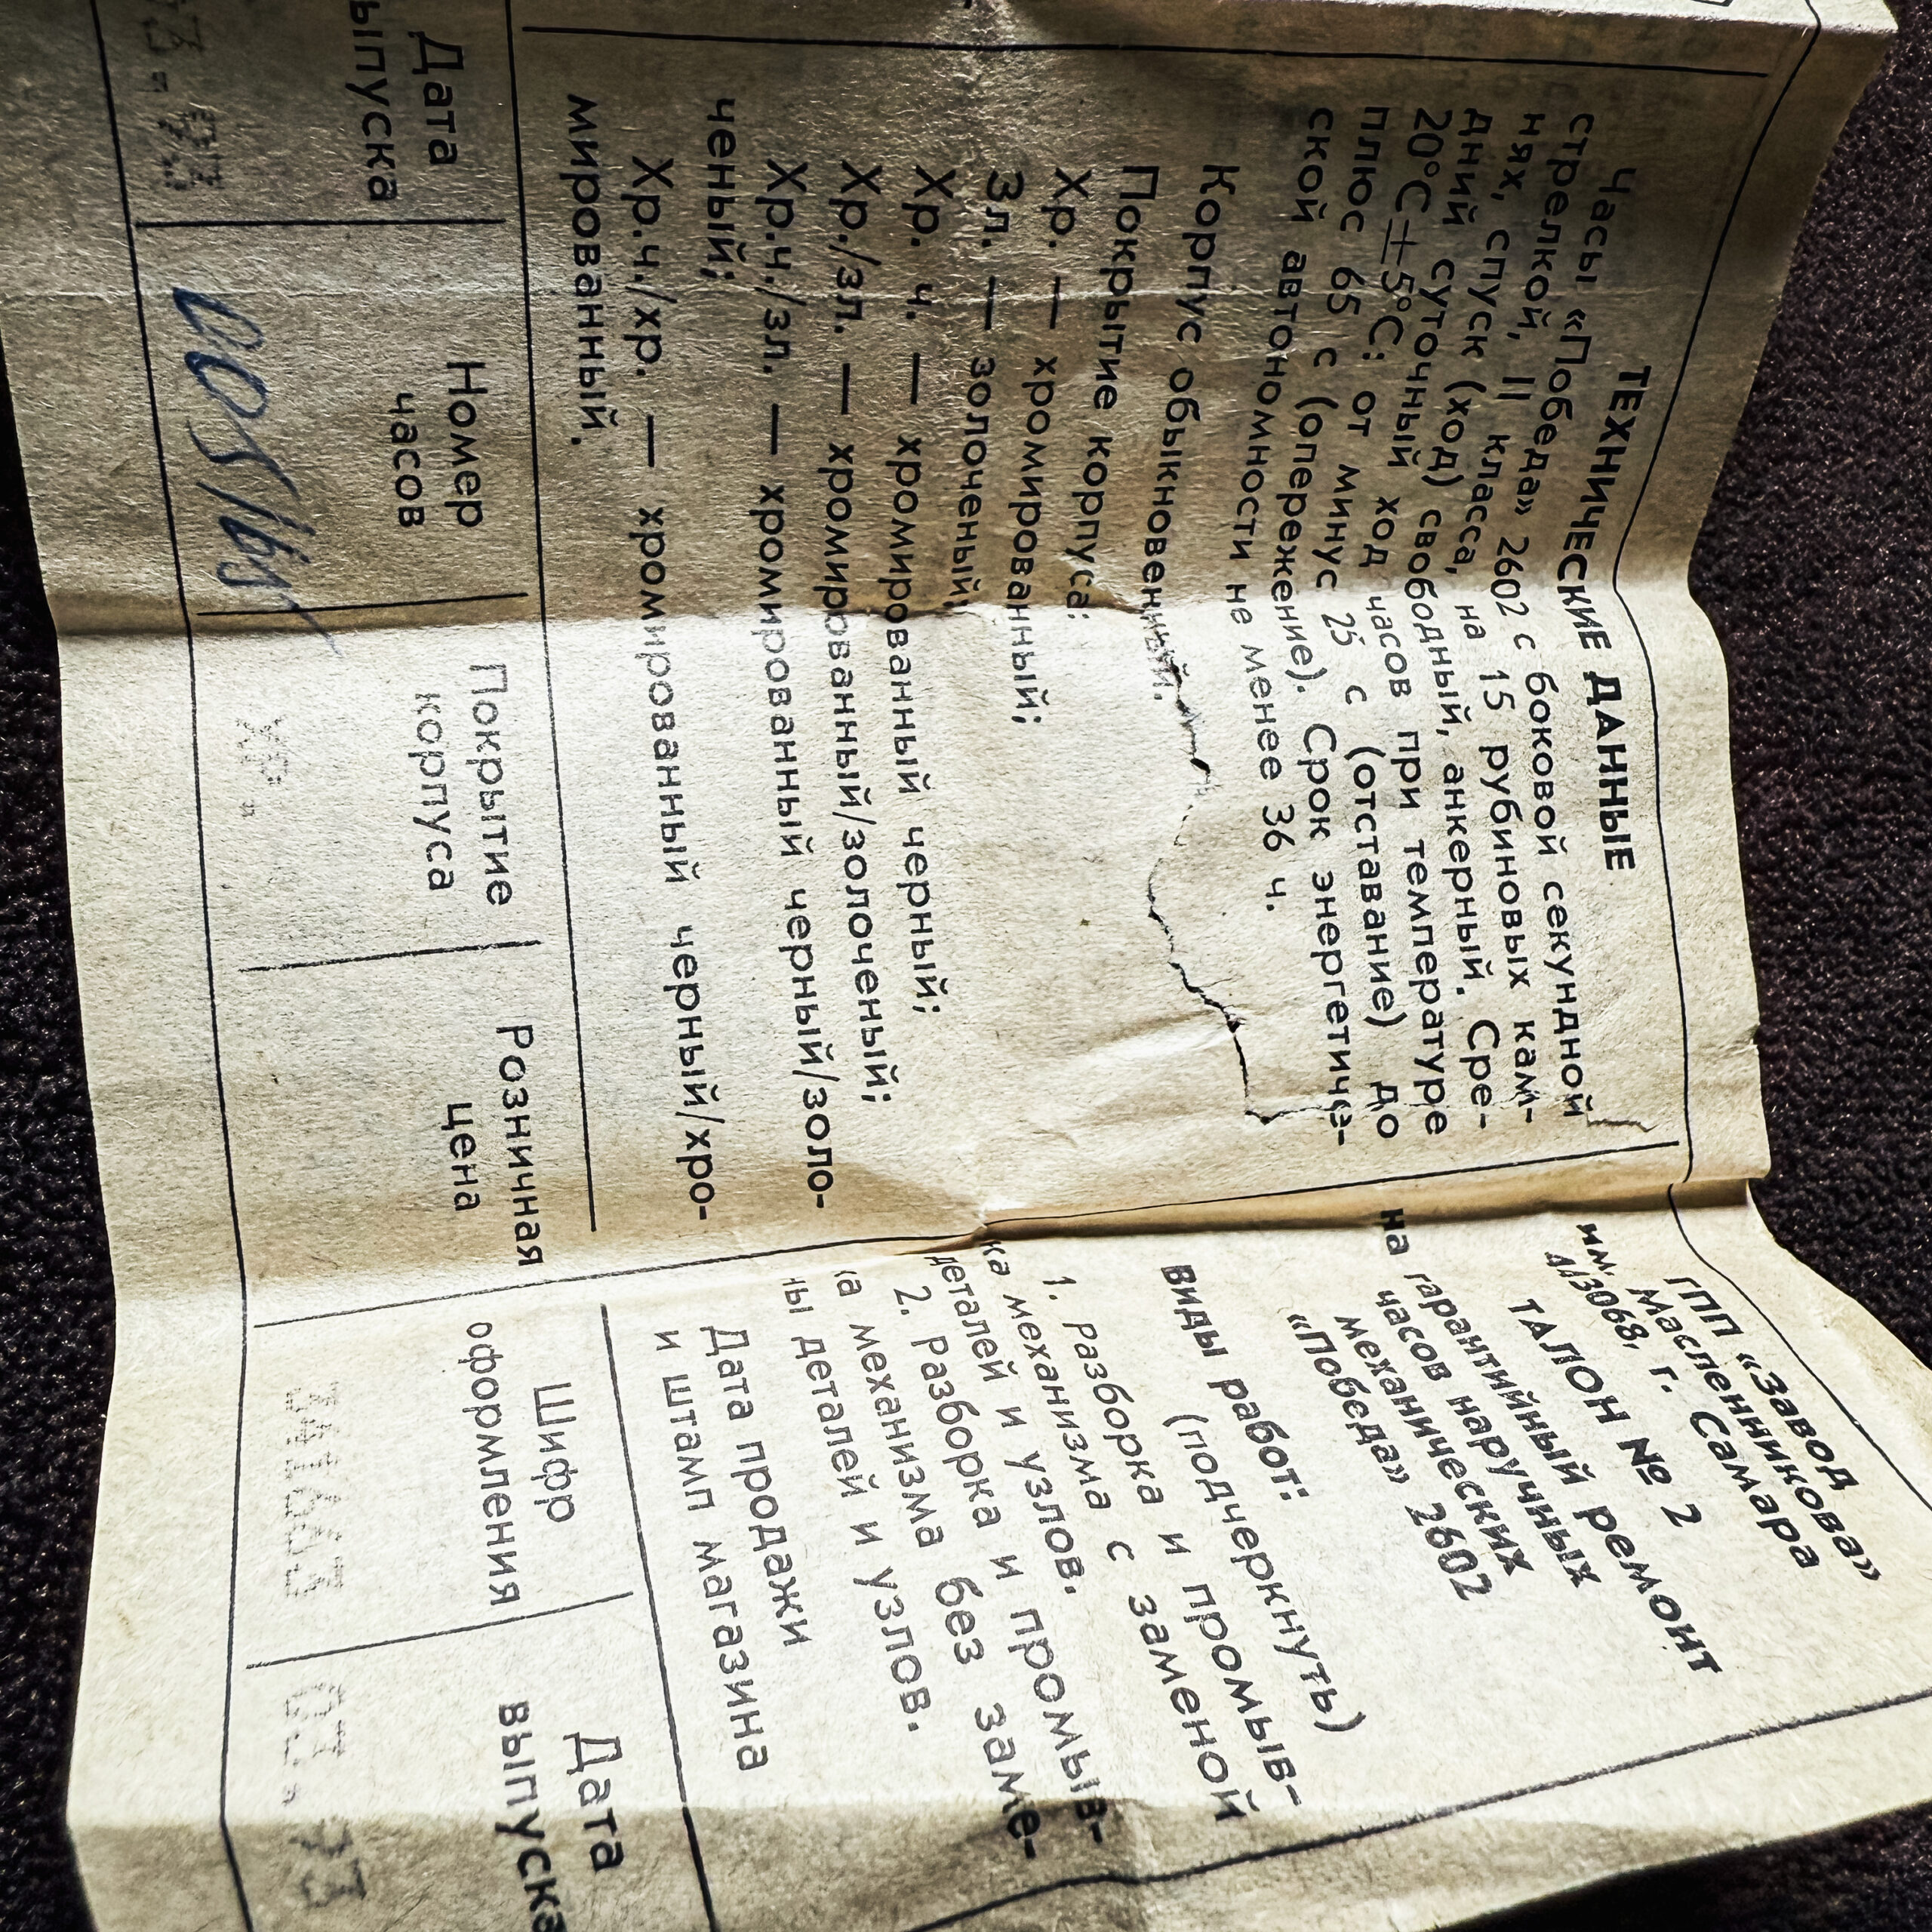 ТЕХНИЧЕСКИЕ ДАННЫЕ
Часы «Победа» 2602 с боковой секундной
стрелкой, II класса, на 15 рубиновых кам-
нях, спуск (ход) свободный, анкерный. Сре-
дний суточный ход часов при температуре
20°С±5°С: от минус 25 с (отставание) до
плюс 65 с (опережение). Срок энергетиче-
ской автономности не менее 36 ч.
Корпус обыкновенный.
Покрытие корпуса:
Хр. — хромированный;
Зл. — золоченый;
Хр. ч. — хромированный черный;
Хр./зл. — хромированный/золоченый;
Хр.ч./зл. — хромированный черный/золо-
ченый;
Хр.ч./хр. — хромированный черный/хро-
мированный.
Дата
выпуска
Номер
часов
Покрытие
корпуса
Хр.
Розничная
цена
ГПП «Завод
им. Масленникова»
443068, г. Самара
ТАЛОН № 2
на гарантийный ремонт
часов наручных
механических
«Победа» 2602
виды работ:
(подчеркнуть)
1. разборка и промыв-
ка механизма с заменой
деталей и узлов.
2. Разборка и промыв-
ка механизма без заме-
ны деталей и узлов.
Дата продажи
и штамп магазина
Шифр
оформления
Дата
выпуска